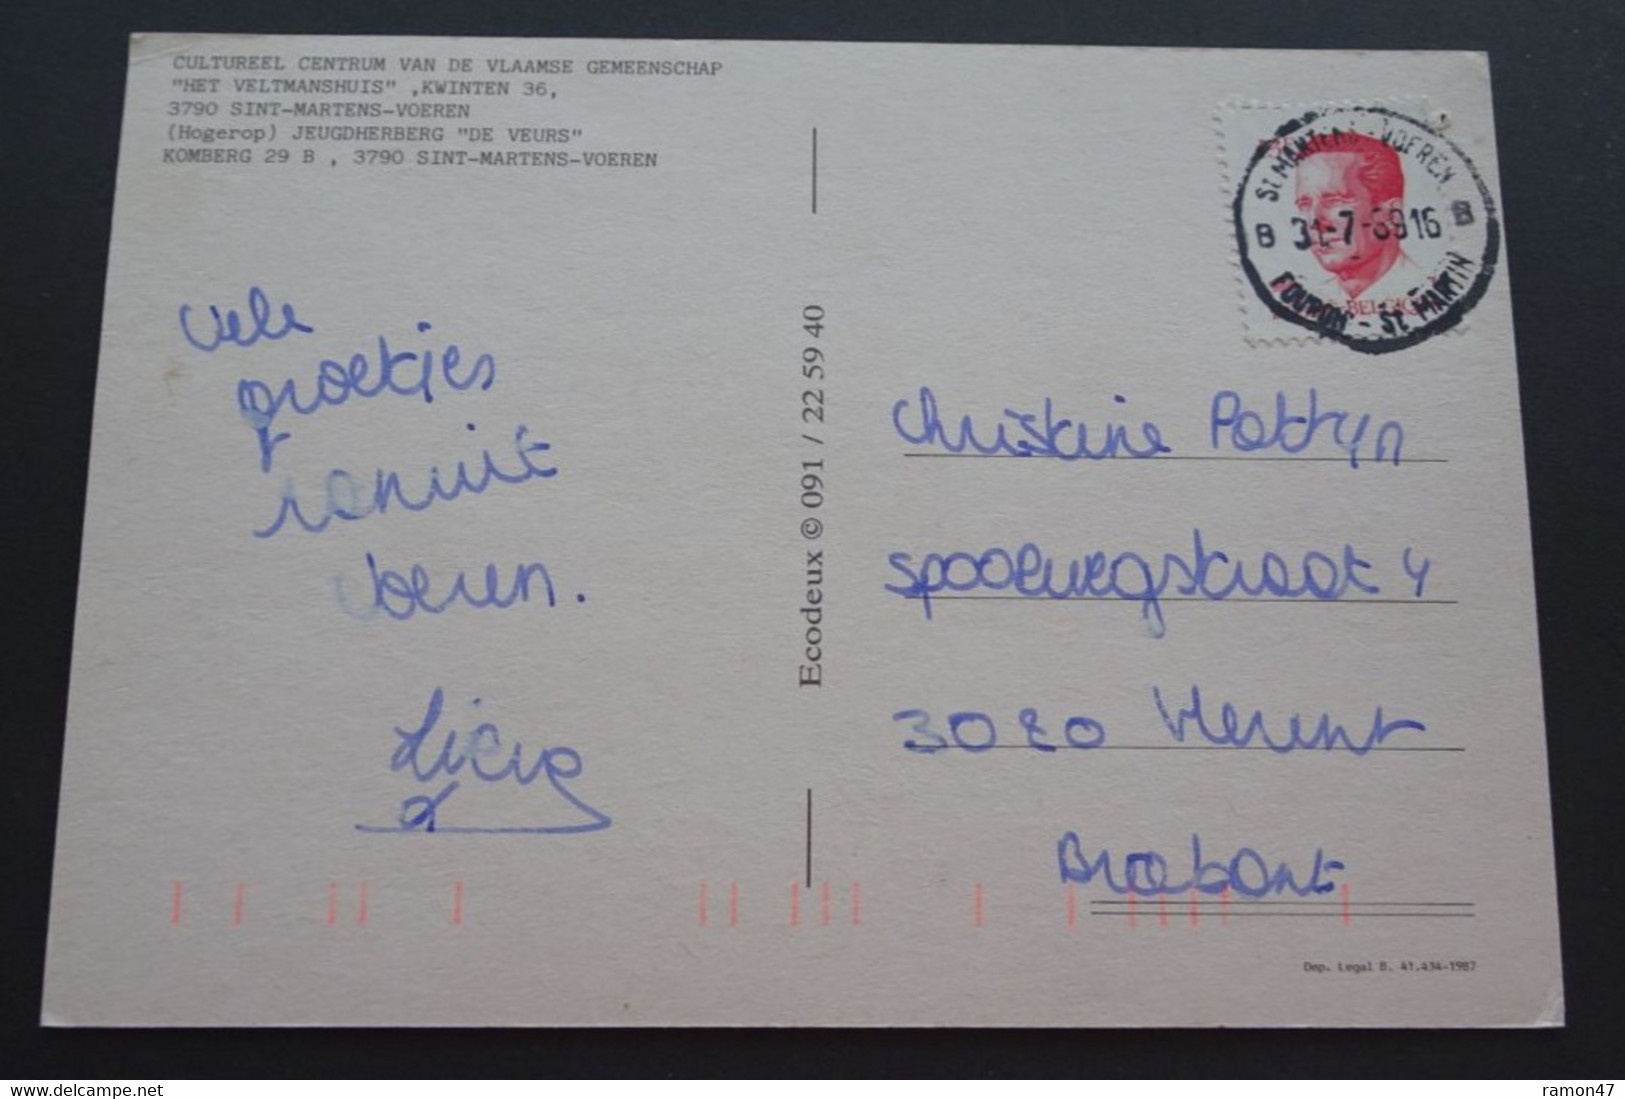 CULTUREEL CENTRUM VAN DE VLAAMSE GEMEENSCHAP
"HET VELTMANSHUIS" ,KWINTEN 36,
3790 SINT-MARTENS-VOEREN
(Hogerop) JEUGDHERBERG "DE VEURS"
KOMBERG 29 B , 3790 SINT-MARTENS-VOEREN
Vele
groetjes
vanuit
Voeren.
Ecodeux © 091 / 22 59 40
ST MARTENS-VOEREN
B 31-7-8916 B
FOURON-ST MARTIN
BELGIQUE
Christine Pattyn
Spoorwegstraat 4
3020 Herent
Brabant
Dep. Legal B. 41.434-1987
ramon47